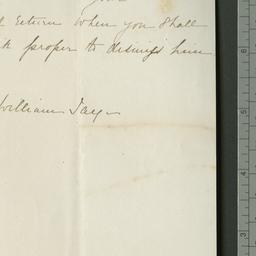 return when you shall
proper to dismiss him
William Jay
6
5
4
3